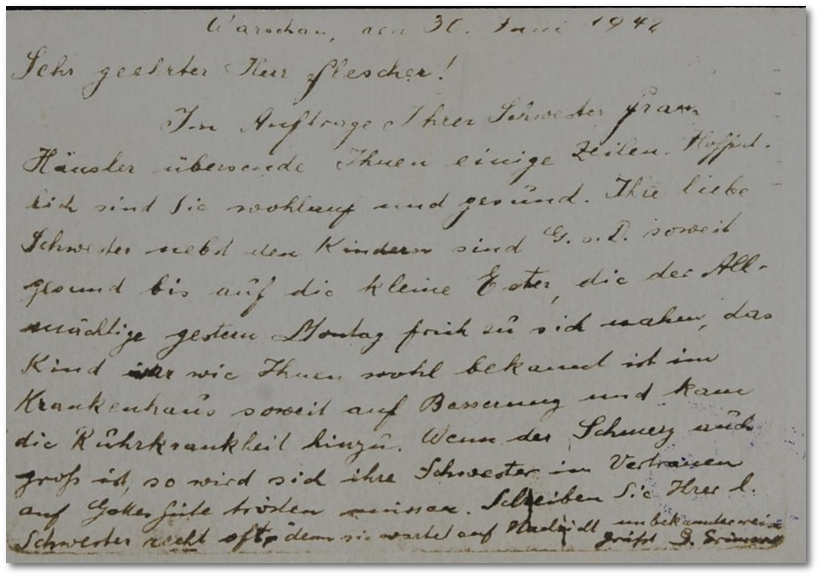 Warschau, den 30. Juni 1942
Sehr geehrter Herr Flescher!
Im Auftrage Ihrer Schwester Frau
Häusler übersende Ihnen einige Zeilen. Hoffent-
lich sind Sie wohlauf und gesund. Ihre liebe
Schwester nebst den Kindern sind G. s. D. soweit
gesund bis auf die kleine Ester, die der All-
mächtige gestern Montag früh zu sich nahm, das
Kind war wie Ihnen wohl bekannt ist im
Krankenhaus soweit auf Besserung und kam
die Ruhrkrankheit hinzu. Wenn der Schmerz auch
groß ist, so wird sich ihre Schwester im Vertrauen
auf Gottes Güte trösten müssen. Schreiben Sie Ihrer l.
Schwester recht oft, denn sie wartet auf Nachricht unbekannterweise
grüßt